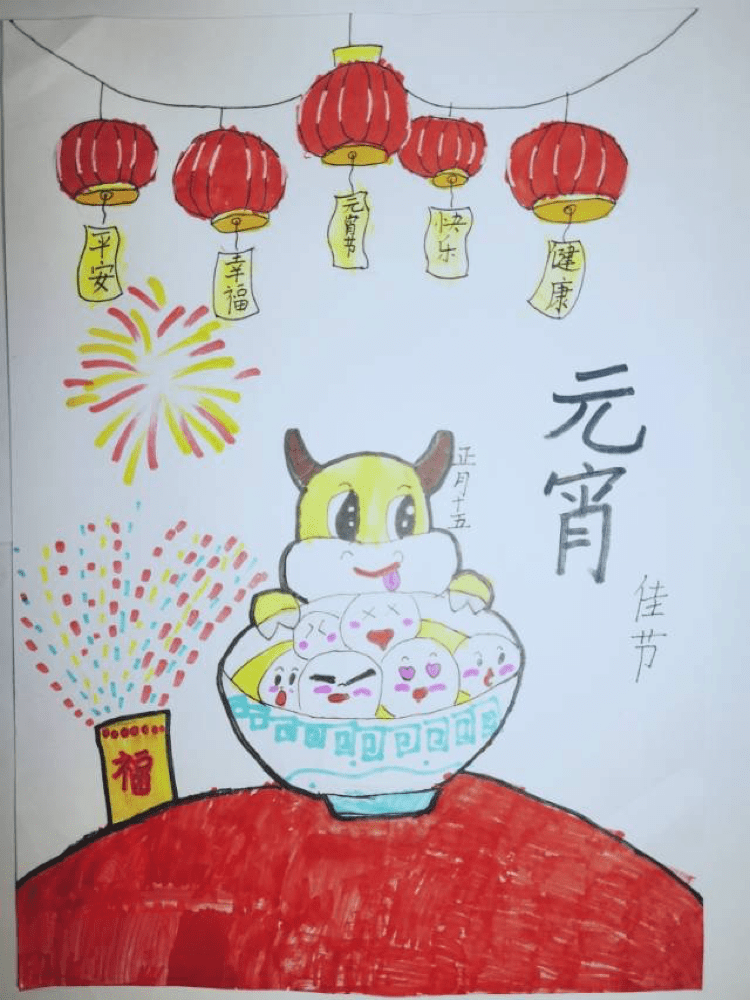 平安
幸福
元宵节
快乐
健康
元宵
佳节
正月十五
福